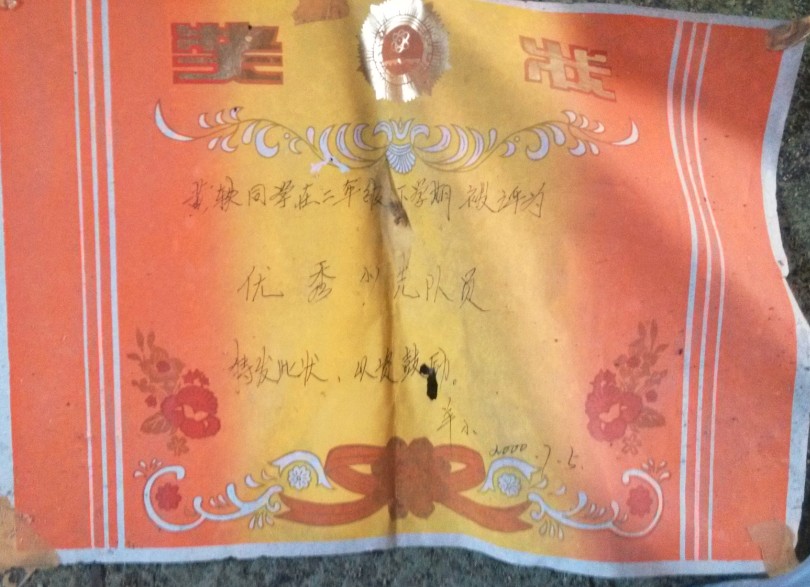 奖状
同学在二年级下学期被评为
优秀少先队员
特发此状，以资鼓励。
2000.7.5.